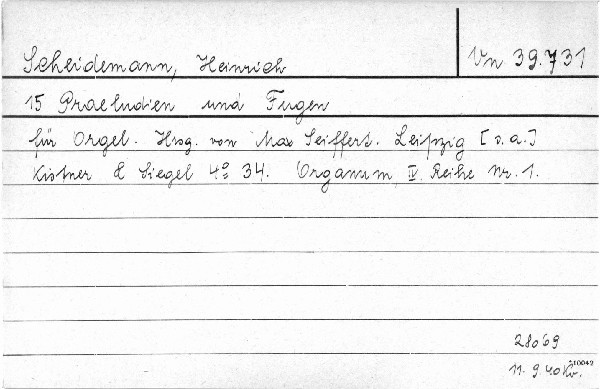 Scheidemann, Heinrich
Vn 39.731
15 Praeludien und Fugen
für Orgel. Hrsg. von Max Seiffert. Leipzig [o.a.]
Kistner & Siegel 4º 34. Organum, IV. Reihe Nr. 1.
28069
11. 9. 40 Kr.